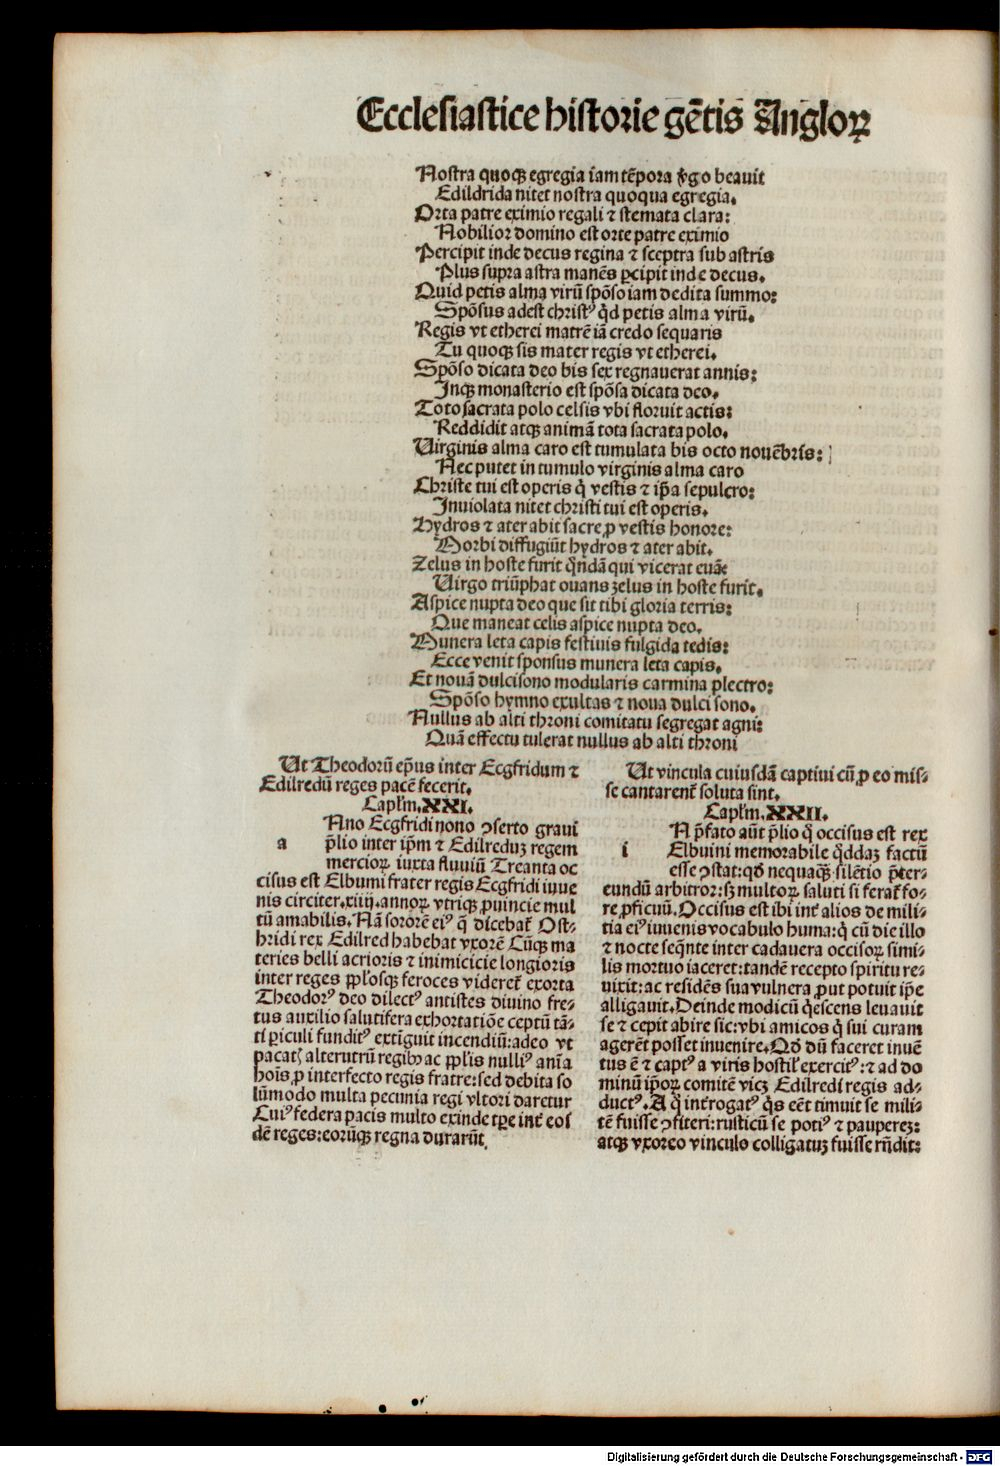 Ecclesiastice historie gẽtis Angloꝝ
Nostra quoqꝫ egregia iam tẽpora ꝟgo beauit
Edildrida nitet nostra quoqua egregia.
Orta patre eximio regali ⁊ stemata clara:
Nobilior domino est orte patre eximio
Percipit inde decus regina ⁊ sceptra sub astris
Plus supra astra manẽs ꝑcipit inde decus.
Quid petis alma virũ spõso iam dedita summo:
Spõsus adest christꝰ qd petis alma virũ.
Regis vt etherei matrẽ iã credo sequaris
Tu quoqꝫ sis mater regis vt etherei.
Spõso dicata deo bis sex regnauerat annis:
Inqꝫ monasterio est spõsa dicata deo.
Toto sacrata polo celsis vbi floruit actis:
Reddidit atqꝫ animã tota sacrata polo.
Uirginis alma caro est tumulata bis octo nouẽbris:
Nec putet in tumulo virginis alma caro
Christe tui est operis q̃ vestis ⁊ ip̃a sepulcro:
Inuiolata nitet christi tui est operis.
Hydros ⁊ ater abit sacre ꝓ vestis honore:
Morbi diffugiũt hydros ⁊ ater abit.
Zelus in hoste furit qñdã qui vicerat euã:
Uirgo triũphat ouans zelus in hoste furit.
Aspice nupta deo que sit tibi gloria terris:
Que maneat celis aspice nupta deo.
Munera leta capis festiuis fulgida tedis:
Ecce venit sponsus munera leta capis.
Et nouã dulcisono modularis carmina plectro:
Spõso hymno exultas ⁊ noua dulci sono.
Nullus ab alti throni comitatu segregat agni:
Quã effectu tulerat nullus ab alti throni
Ut Theodorũ ep̃us inter Ecgfridum ⁊
Edilredũ reges pacẽ fecerit.
Capl̃m.XXI.
Nno Ecgfridi nono ꝯserto graui
a p̃lio inter ip̃m ⁊ Edilreduꝫ regem
mercioꝝ iuxta fluuiũ Treanta oc
cisus est Elbumi frater regis Ecgfridi iuue
nis circiter.xiiij.annoꝝ vtriqꝫ ꝓuincie mul
tũ amabilis. Nã sororẽ eiꝰ q̃ dicebat᷑ Ost⸗
hridi rex Edilred habebat vxorẽ Cũqꝫ ma
teries belli acrioris ⁊ inimicicie longioris
inter reges ppl̓osqꝫ feroces videret᷑ exorta
Theodorꝰ deo dilectꝰ antistes diuino fre⸗
tus auxilio salutifera exhortatiõe ceptũ tã⸗
ti ꝑiculi funditꝰ extĩguit incendiũ:adeo vt
pacatꝭ alterutrũ regibꝰ ac ppl̓is nulliꝰ anĩa
hoĩs ꝓ interfecto regis fratre:sed debita so
lũmodo multa pecunia regi vltori daretur
Cuiꝰ federa pacis multo exinde tꝑe int᷑ eos
dẽ reges:eorũqꝫ regna durarũt.
Ut vincula cuiusdã captiui cũ ꝓ eo mis⸗
se cantarent᷑ soluta sint.
Capl̃m.XXII.
N p̃fato aũt p̃lio q̃ occisus est rex
i Elbuini memorabile q̃ddaꝫ factũ
esse ꝯstat:qđ nequaqꝫ silẽtio p̃ter⸗
eundũ arbitror:sꝫ multoꝝ saluti si ferat᷑ fo⸗
re ꝓficuũ.Occisus est ibi int᷑ alios de mili⸗
tia eiꝰ iuuenis vocabulo huma:q̃ cũ die illo
⁊ nocte seqñte inter cadauera occisoꝝ simi⸗
lis mortuo iaceret:tandẽ recepto spiritu re⸗
uixit:ac residẽs sua vulnera ꝓut potuit ip̃e
alligauit.Deinde modicũ q̃escens leuauit
se ⁊ cepit abire sic:vbi amicos q̃ sui curam
agerẽt posset inuenire.Qđ dũ faceret inuẽ
tus ẽ ⁊ captꝰ a viris hostil̓ exercitꝰ:⁊ ad do
minũ ip̃oꝝ comitẽ vicꝫ Edilredi regis ad⸗
ductꝰ.A q̃ int᷑rogatꝰ q̃s eẽt timuit se mili⸗
tẽ fuisse ꝯfiteri:rusticũ se potiꝰ ⁊ paupereꝫ:
atqꝫ vxoreo vinculo colligatuꝫ fuisse rñdit:
Digitalisierung gefördert durch die Deutsche Forschungsgemeinschaft - DFG